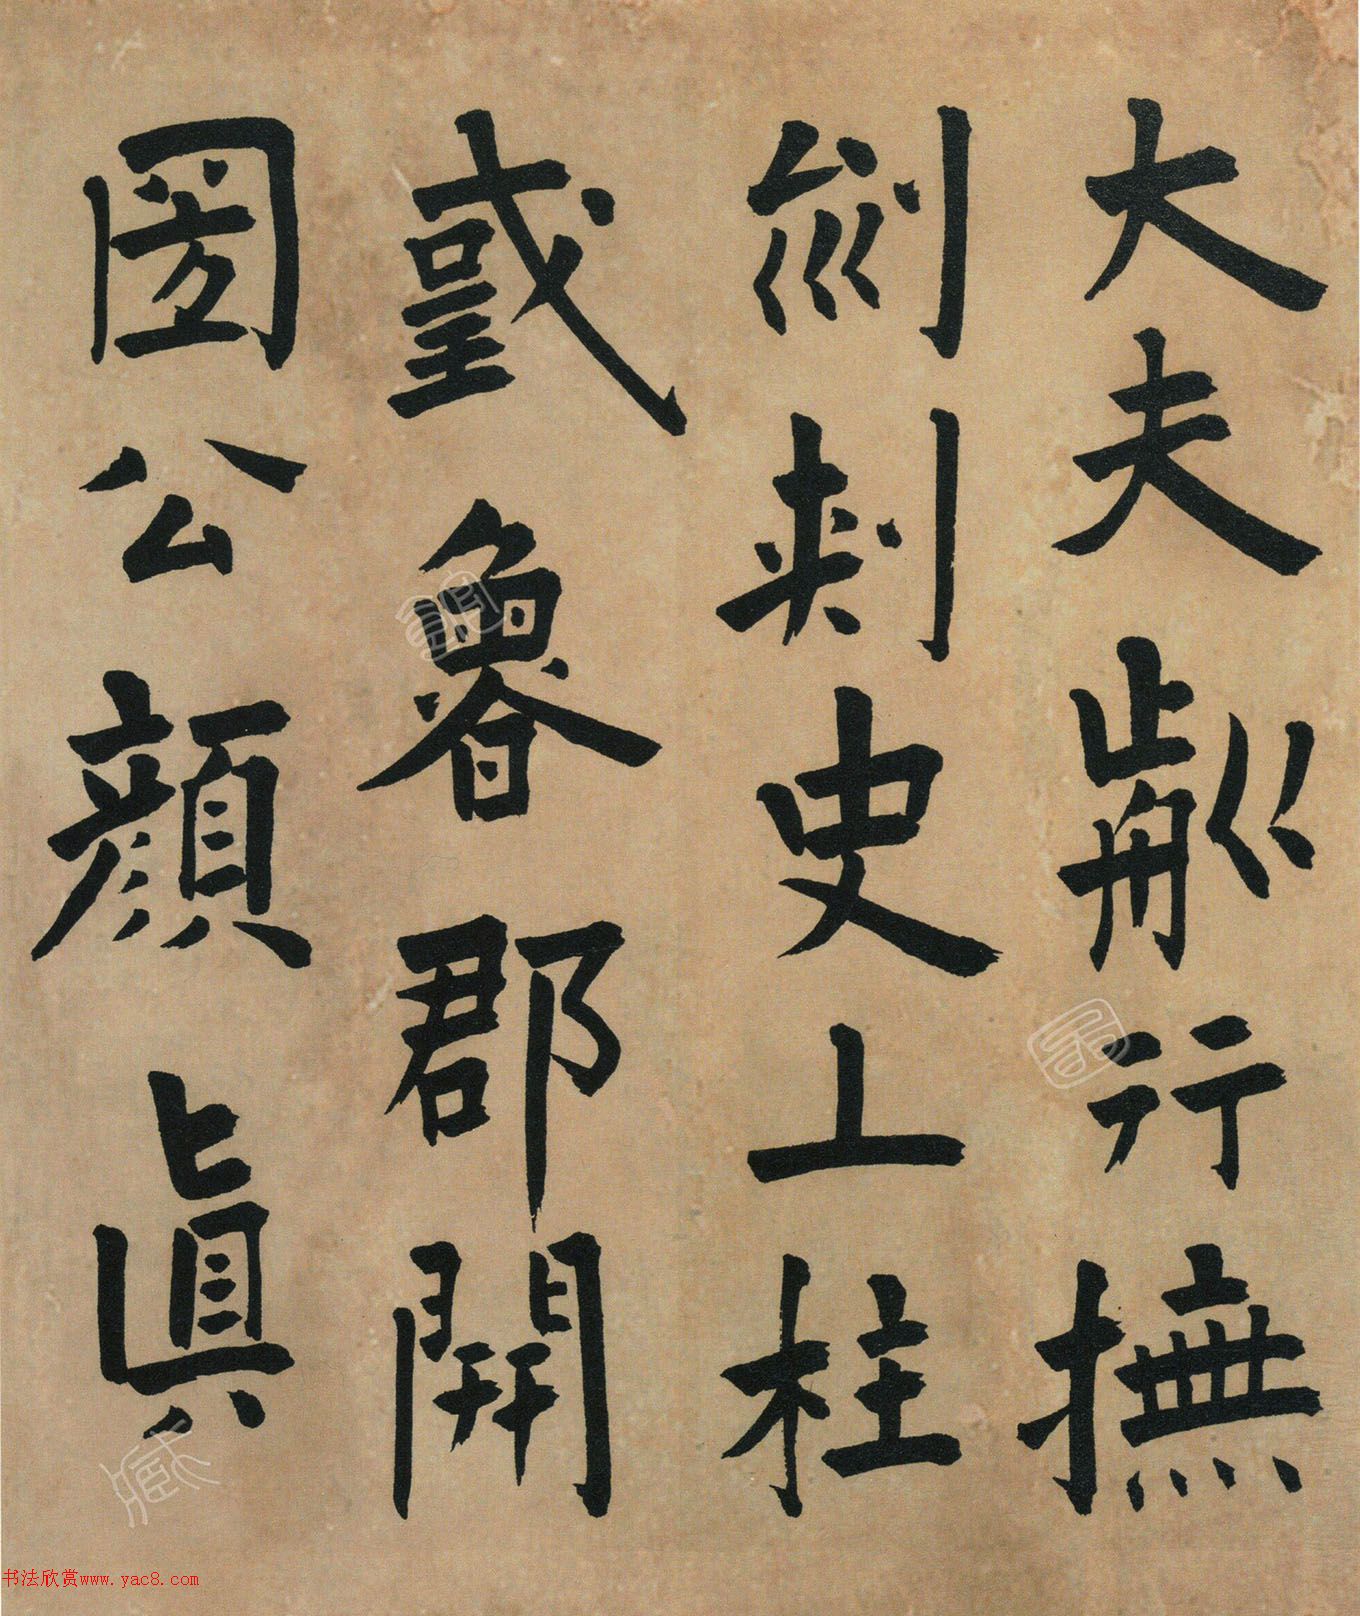 大夫前行撫
州刺史上柱
國魯郡開
圀公顏眞
书法欣赏www.yac8.com